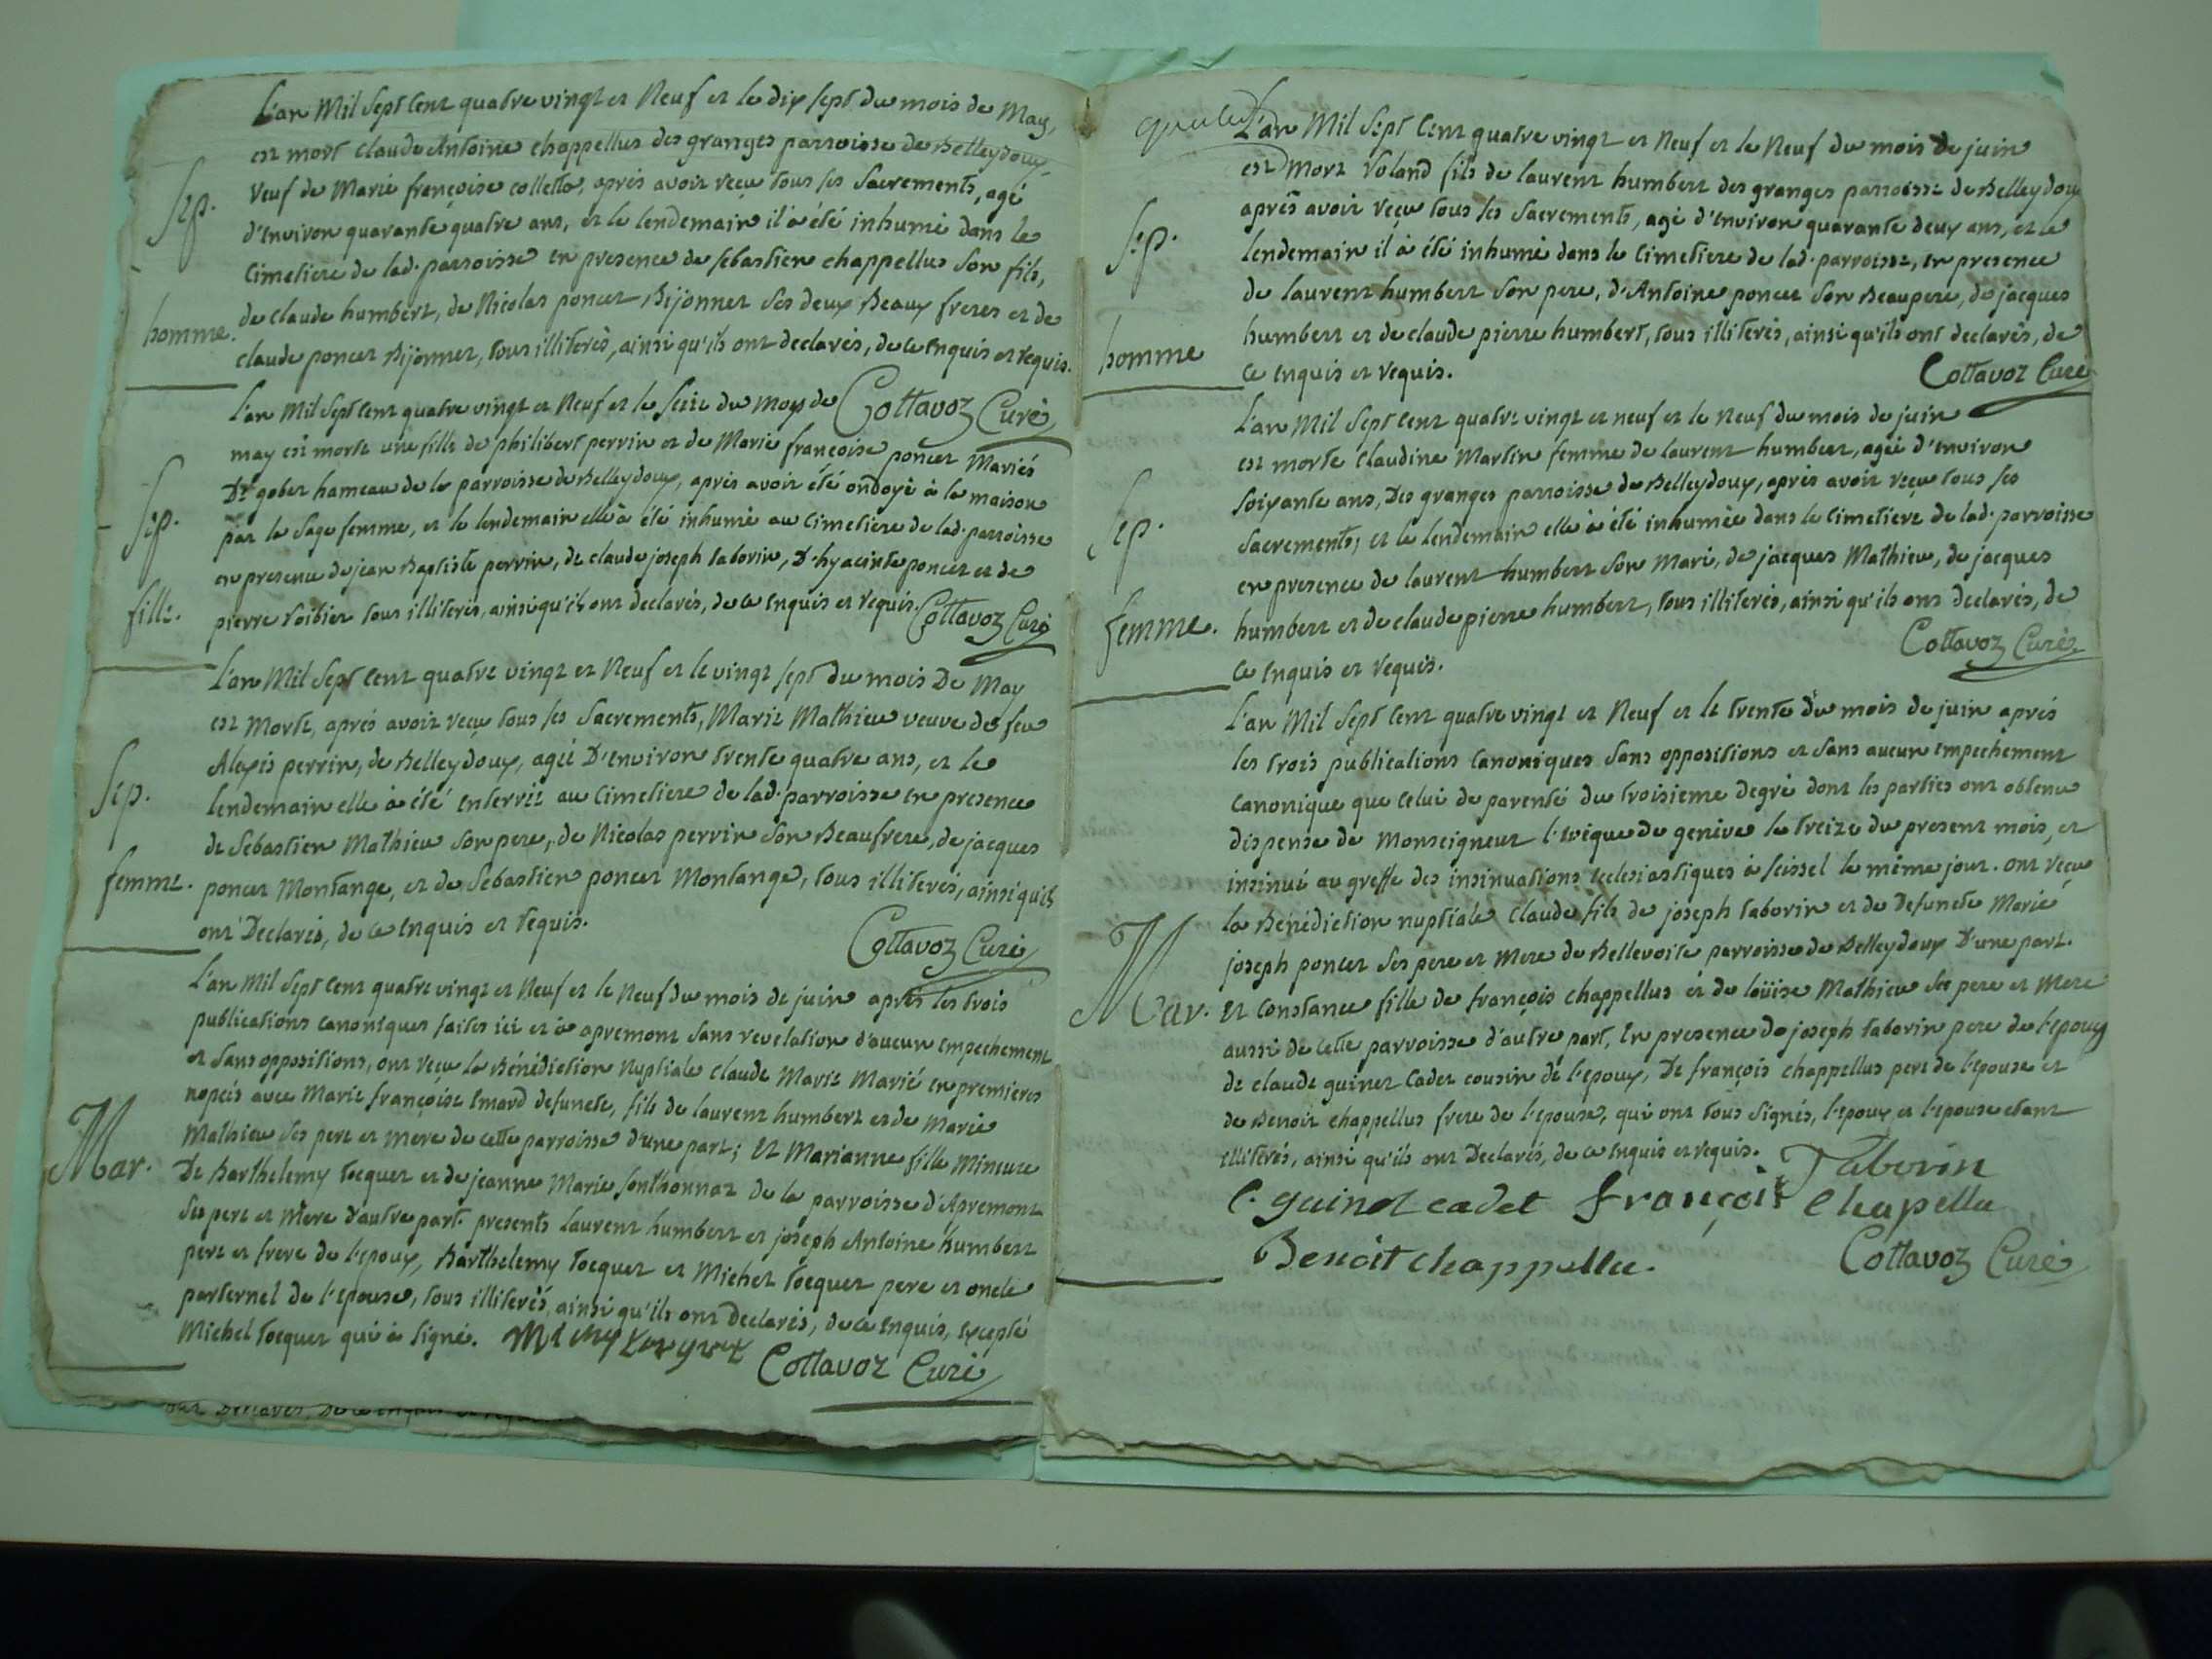 L'an Mil sept cent quatre vingt et Neuf et le dix sept du mois de May,
est mort claude Antoine chappellus des granges parroisse de Belleydoux
veuf de Marie françoise colletta, aprés avoir reçu tous ses Sacrements, agé
Sep.
d'environ quarante quatre ans, et le lendemain il à été inhumé dans le
Cimetiere de lad. parroisse en presence de sebastien chappellus Son fils,
homme.
de claude humbert, de Nicolas poncet Bijonnet Ses deux Beaux freres et de
claude poncet Bijonnet, tous illiterés, ainsi qu'ils ont declarés, de ce enquis et requis.
Cottavoz Curé
L'an Mil Sept cent quatre vingt et Neuf et le seize du moys de
may est morte une fille de philibert perrin et de Marie françoise poncet Mariés
De gobet hameau de la parroisse de Belleydoux, aprés avoir été ondoyé à la maison
Sep.
par la Sage femme, et le lendemain elle à été inhumé au Cimetiere de lad. parroisse
en presence de jean Baptiste perrin, de claude joseph taborin, D'hyacinte poncet et de
fille.
pierre roibier tous illiterés, ainsi qu'ils ont declarés, de ce enquis et requis. Cottavoz Curé
L'an Mil Sept cent quatre vingt et Neuf et le vingt sept du mois De May
est Morte, aprés avoir reçu tous ses Sacrements, Marie Mathieu veuve de feu
Alexis perrin, de Belleydoux, agée D'environ trente quatre ans, et le
Sep.
lendemain elle à été enterrée au Cimetiere de lad. parroisse en presence
de Sebastien Mathieu Son pere, de Nicolas perrin Son Beaufrere, de jacques
femme.
poncet Montange, et de Sebastien poncet Montange, tous illiterés, ainsi qu'ils
ont Declarés, de ce enquis et requis.
Cottavoz Curé
L'an Mil Sept cent quatre vingt et Neuf et le Neuf du mois de juin aprés les trois
publications canoniques faites ici et à apremont sans revelation d'aucun empechement
et Sans oppositions, ont reçu la Bénédiction Nuptiale claude Marie Marié en premieres
nopces avec Marie françoise Emard defuncte, fils de laurent humbert et de Marie
Mathieu Ses pere et mere de cette parroisse d'une part; Et Marianne fille Mineure
Mar.
De Barthelemy tocquet et de jeanne Marie Sonthonnaz de la parroisse d'Apremont
Ses pere et Mere d'autre part. presents laurent humbert et joseph Antoine humbert
pere et frere de l'epoux, Barthelemy tocquet et Michel tocquet pere et oncle
parternel de l'epouse, tous illiterés, ainsi qu'ils ont Declarés, de ce enquis, excepté
Michel tocquet qui à signé.
Cottavoz Curé
L'an Mil Sept Cent quatre vingt et Neuf et le Neuf du mois de juin
est Mort roland fils de laurent humbert des granges parroisse de Belleydoux
aprés avoir reçu tous ses Sacrements, agé d'environ quarante deux ans, et le
Sep.
lendemain il à été inhumé dans le Cimetiere de lad. parroisse, en presence
de laurent humbert Son pere, d'Antoine poncet Son Beaupere, de jacques
homme
humbert et de claude pierre humbert, tous illiterés, ainsi qu'ils ont declarés, de
ce enquis et requis.
Cottavoz Curé
L'an Mil Sept cent quatre vingt et neuf et le Neuf du mois de juin
est morte claudine Martin femme de laurent humbert, agée d'environ
Soixante ans, Des granges parroisse de Belleydoux, aprés avoir reçu tous ses
Sep.
Sacrements, et le lendemain elle à été inhumée dans le Cimetiere de lad. parroisse
en presence de laurent humbert Son Mari, de jacques Mathieu, de jacques
femme.
humbert et de claude pierre humbert, tous illiterés, ainsi qu'ils ont declarés, de
ce enquis et requis.
Cottavoz Curé
L'an Mil Sept cent quatre vingt et Neuf et le trente du mois de juin aprés
les trois publications Canoniques Sans oppositions et Sans aucun empechement
canonique que celui de parenté du troisieme degré dont les parties ont obtenu
dispense de Monseigneur l'eveique de geneve le treize du present mois, et
insinué au greffe des insinuations ecclesiastiques à seissel le même jour. ont reçu
la Bénédiction nuptiale Claude fils de joseph taborin et de Defuncte Marie
joseph poncet Ses pere et Mere de Bellevoite parroisse de Belleydoux D'une part.
Mar.
Et Constance fille de françois chappellus et de loüise Mathieu Ses pere et Mere
aussi de cette parroisse d'autre part, En presence de joseph taborin pere de l'epoux
de claude guinet Cadet cousin de l'epoux, De françois chappellus pere de l'epouse et
de Benoit chappellus frere de l'epouse, qui ont tous Signés, l'epoux et l'epouse etant
illiterés, ainsi qu'ils ont Declarés, de ce enquis et requis.
Taborin
C. guinet cadet françois Chapellu
Benoit chappellu.
Cottavoz Curé